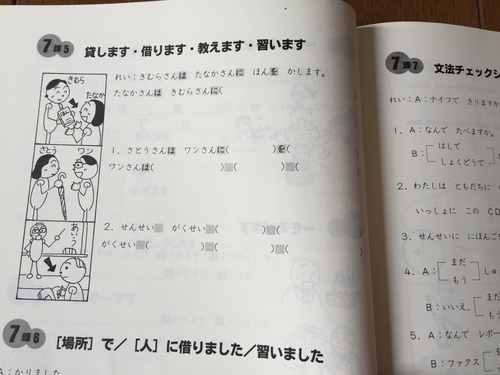 7課5 貸します・借ります・教えます・習います
きむら
たなか
れい：きむらさんは たなかさんに ほんを かします。
たなかさんは きむらさんに(
さとう
ワン
1. さとうさんは ワンさんに( )を(
ワンさんは( )( )(
あいう
2. せんせい がくせい( )(
がくせい( )( )(
7課6 [場所]で／[人]に借りました／習いました
A：かりました
7課7 文法チェックシ
れい：A：ナイフで きります
1. A：なんで たべますか。
B： はしで
しょくどうで
2. わたしは ともだちに
いっしょに この CD
3. せんせいに にほんご
4. A： まだ
もう
B：いいえ、 まだ
もう
5. A：なんで レポー
B：ファックス